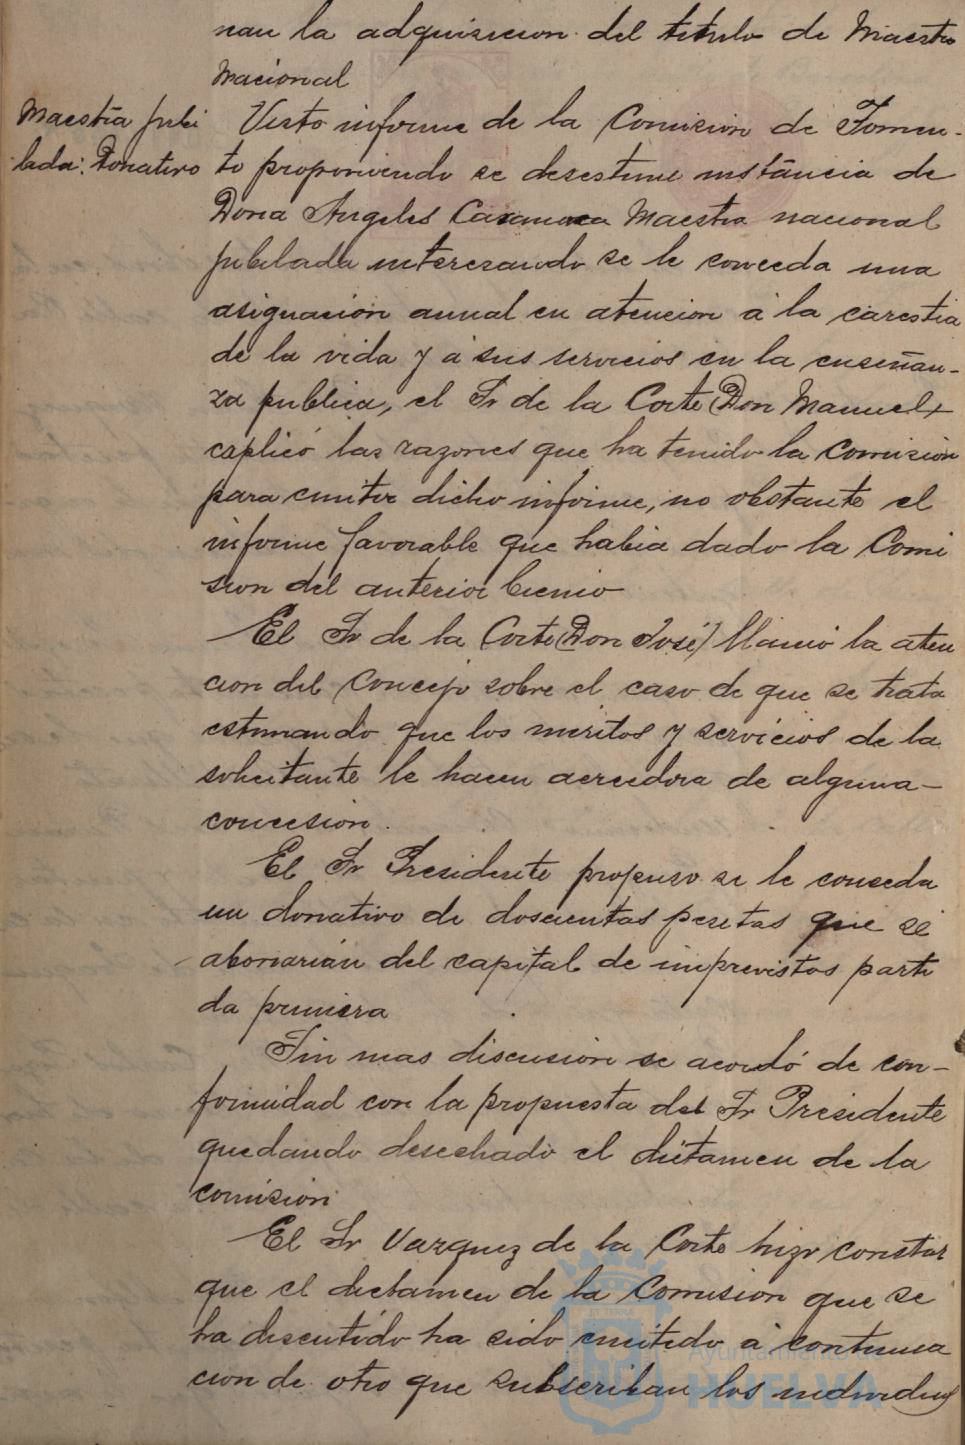 nan la adquisicion del titulo de Maestro
Nacional
Maestra jubi
lada: Donativo
Visto informe de la Comision de Fomen-
to proponiendo se desestime instancia de
Doña Angeles Casanova Maestra nacional
jubilada interesando se le conceda una
asignación annal en atencion á la carestia
de la vida y á sus servicios en la enseñan-
za publica, el Sr de la Corte (Don Manuel)
esplicó las razones que ha tenido la Comisión
para emitir dicho informe, no obstante el
informe favorable que habia dado la Comi
sion del anterior bienio
El Sr de la Corte (Don José) llamó la aten
cion del Concejo sobre el caso de que se trata
estimando que los meritos y servicios de la
solicitante le hacen acreedora de alguna-
concesion.
El Sr Presidente propuso se le conceda
un donativo de doscientas pesetas que se
abonarian del capital de imprevistos parti
da primera
Sin mas discusion se acordó de con-
formidad con la propuesta del Sr Presidente
quedando desechado el dictamen de la
comisión
El Sr Vazquez de la Corte hizo constar
que el dictamen de la Comision que se
ha discutido ha sido emitido á continua
cion de otro que subscriban los individuos
Ayuntamiento de
HUELVA